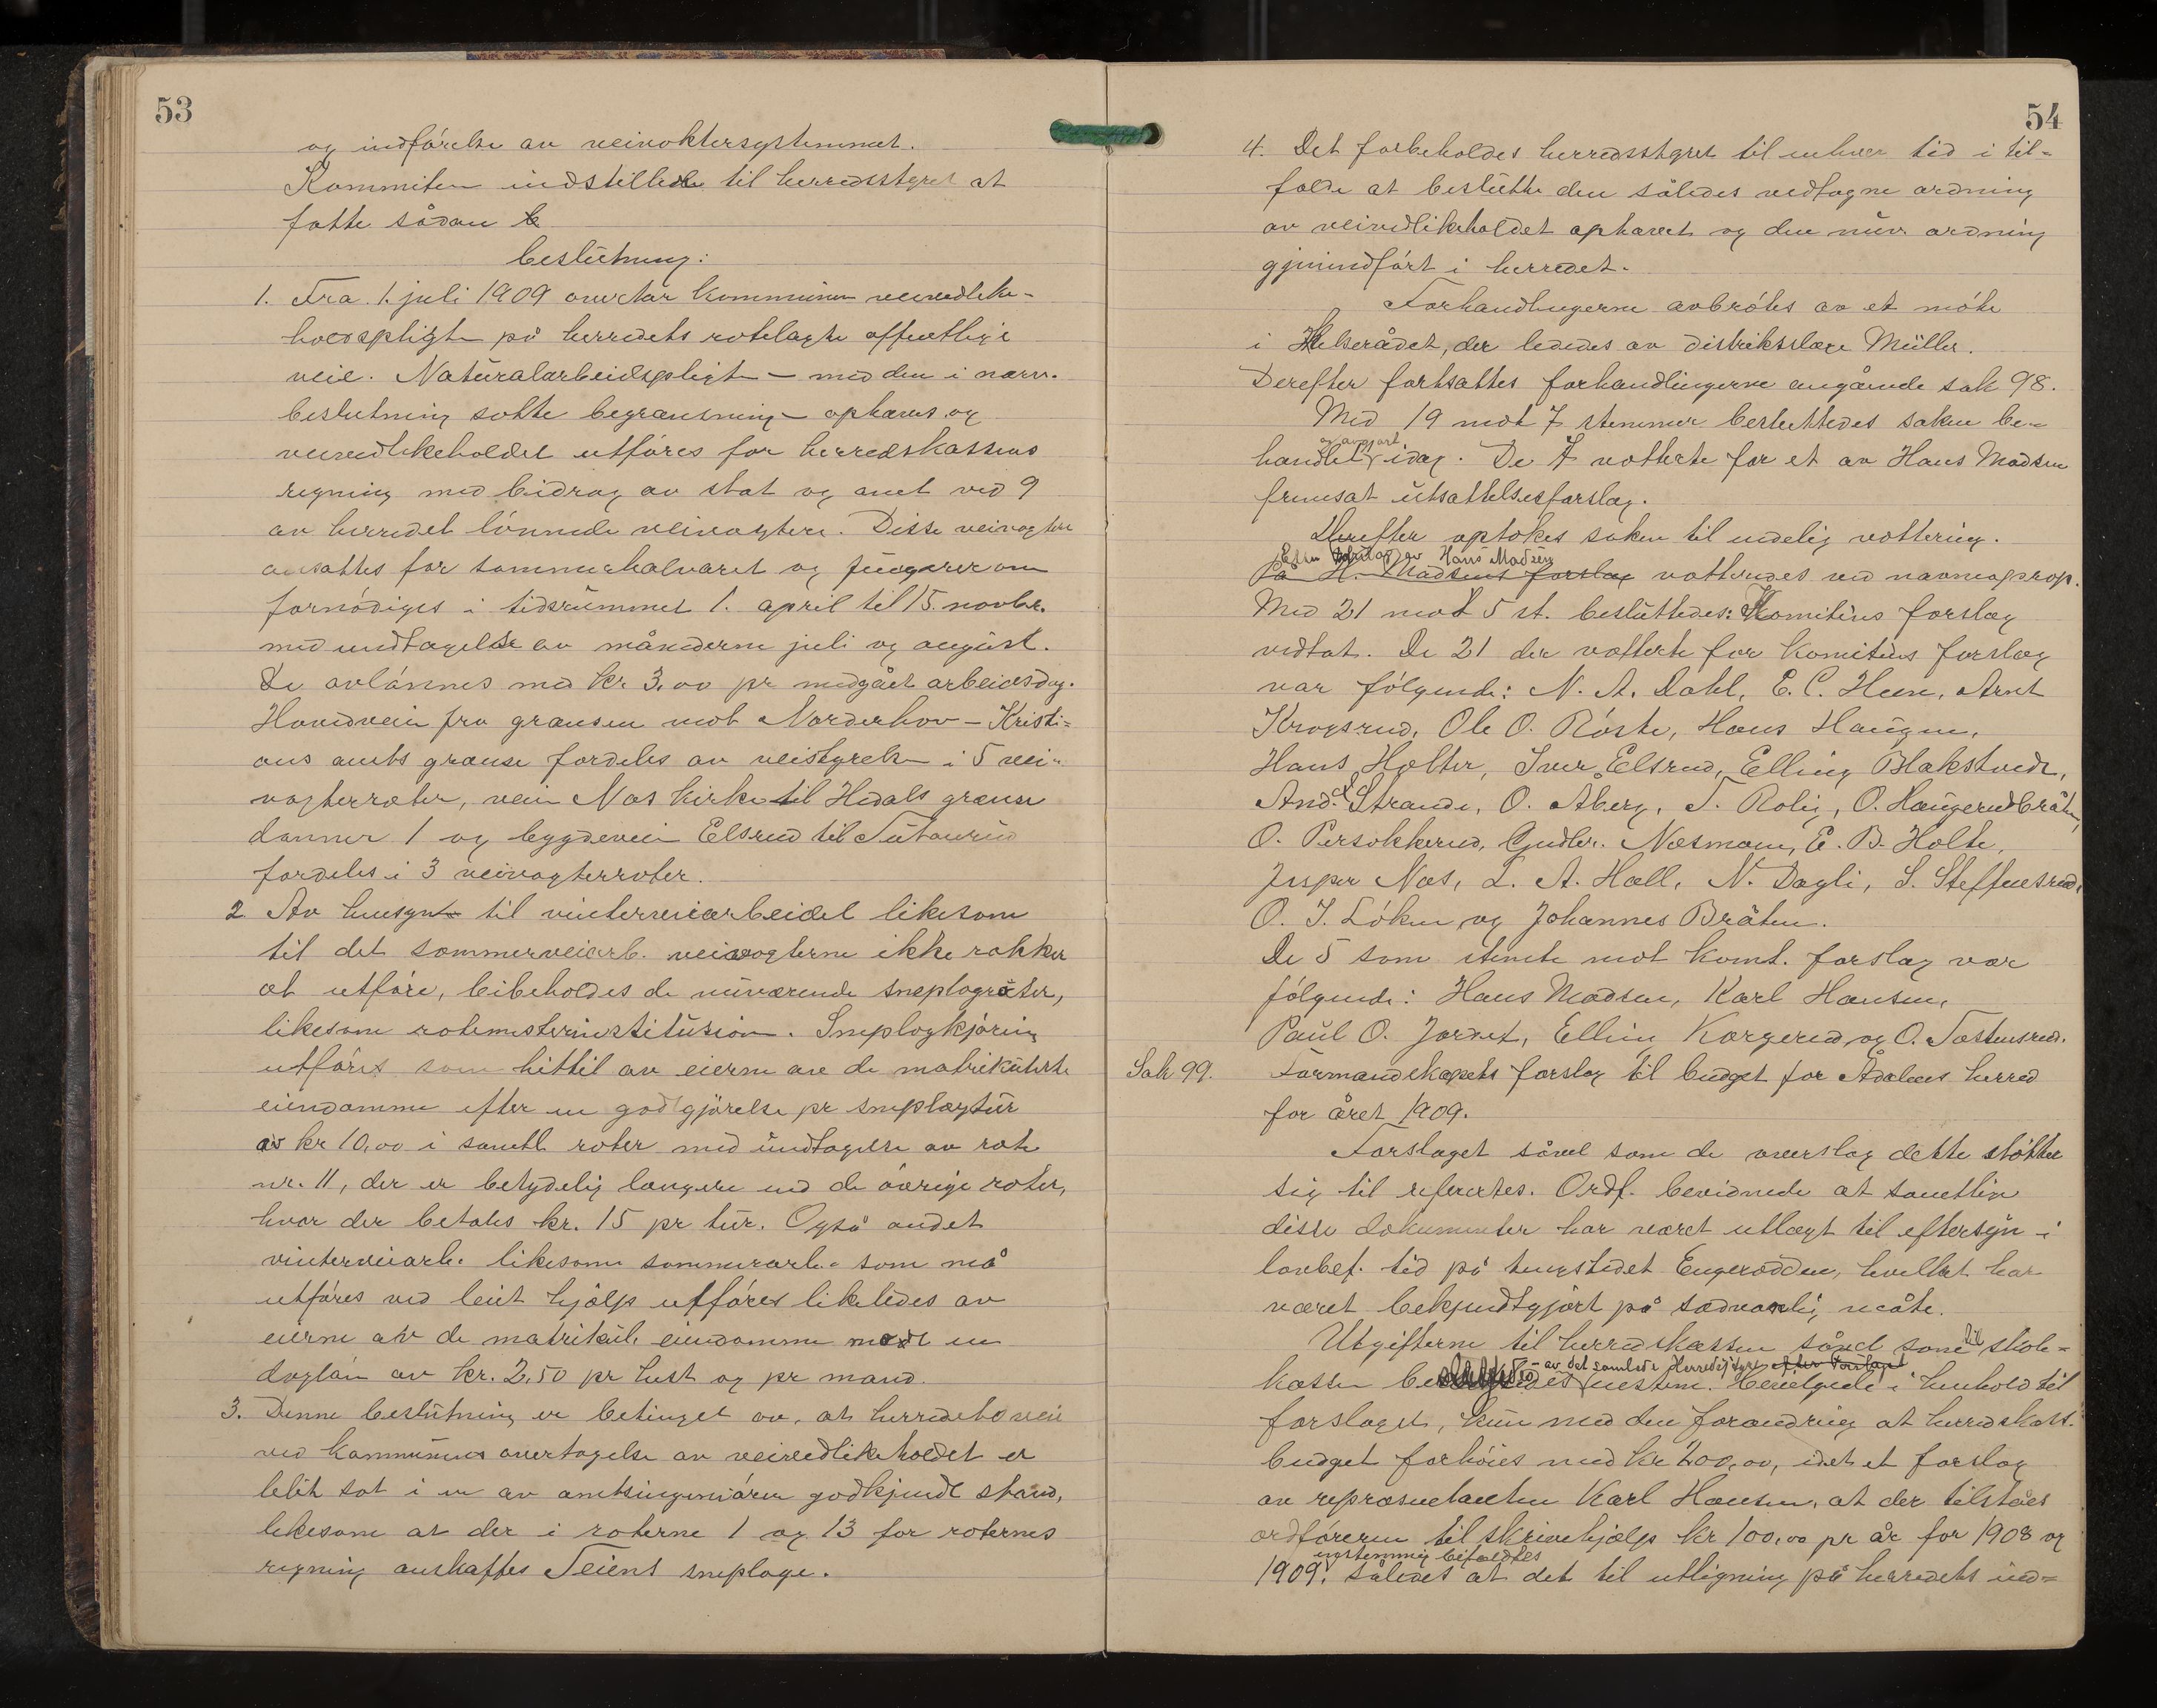 53
og indførelse av veivoktersystemmet.
Kommiten indstillede til herredsstyret at
fatte sådan
beslutning:
1. Fra 1. juli 1909 overtar kommunen veivedlike-
holdspligten på herredets rotelagte offentlige
veie. Naturalarbeidspligten – med den i nærv.
beslutning satte begrænsning – ophæves og
veivedlikeholdet utføres for herredskassens
regning med bidrag av stat og amt ved 9
av herredet lønnede veivogtere. Disse veivogtere
ansættes for sommerhalvaret og fungerer om
fornødiges i tidsrummet 1. april til 15. novbr.
med undtagelse av månederne juli og august.
De avlønnes med kr 3,00 pr medgået arbeidsdag.
Hovedveien fra grænsen mot Norderhov – Kristi-
ans amts grænse fordeles av veistyrelsen i 5 vei-
vogterroter, veien Næs kirke til Hedals grænse
danner 1 og bygdeveien Elsrud til
fordeles i 3 veivogterroter.
2. Av hensyn til vinterveiarbeidet likesom
til det sommerveiarb. veivogterne ikke rækker
at utføre, bibeholdes de nuværende sneplogroter,
likesom rotemesterinstitusion. Sneplogkjøring
utføres som hittil av eierne av de matrikulerte
eiendomme efter en godtgjørelse pr sneplogtur
av kr 10,00 i samtl. roter med undtagelse av rote
nr. 11, der er betydelig længere end de øvrige roter,
hvor der betales kr. 15 pr tur. Også andet
vinterveiarb. likesom sommerarb. som må
utføres ved leiet hjælp utføres likeledes av
eierne av de matrikul. eiendomme mot en
dagløn av kr. 2,50 pr hest og pr mand.
3. Denne beslutning er betinget av, at herredets veie
ved kommunens overtagelse av veivedlikeholdet er
blit sat i en av amtsingeniøren godkjendt stand,
likesom at der i roterne 1 og 13 for roternes
regning anskaffes Teiens sneploge.
54
4. Det forbeholdes herredsstyret til enhver tid i til-
fælde at beslutte den således vedtagne ordning
av veivedlikeholdet ophævet og den nuv. ordning
gjenindført i herredet.
Forhandlingerne avbrøtes av et møte
i Helserådet, der lededes av distriktslæge Müller.
Derefter fortsattes forhandlingerne angående sak 98.
Med 19 mot 7 stemmer besluttedes saken be-
handlet og avgjort idag. De 7 votterte for et av Hans Madsen
fremsat utsættelsesforslag.
Derefter optokes saken til endelig vottering.
Efter forslag av Hans Madsen
På H. Madsens forslag votteredes ved navneoprop.
Med 21 mot 5 st. besluttedes: Komiteens forslag
vedtat. De 21 der votterte for komiteens forslag
var følgende: N. A. Dahl, E. C. Heen, Arnt
Krogsrud, Ole O. Røste, Hans Haugen,
Hans Holter, Iver Elsrud, Elling Blakstvedt,
And. Strande, O. Aberg, T. Rolig, O. Haugerudbråten,
O. Persokkerud, Gudbr. Næsmoen, E. B. Holte,
Jesper Næs, L. A. Hall, N. Dagli, S. Steffensrud,
O. J. Løken og Johannes Bråten.
De 5 som stemte mot komt. forslag var
følgende: Hans Madsen, Karl Hansen,
Paul O. Jordet, Elling Korgerud og O. Tostensrud.
Sak 99. Formandskapets forslag til budget for Ådalens herred
for året 1909.
Forslaget såvel som de overslag dette støtter
sig til refereretes. Ordf. bevidnede at samtlige
disse dokumenter har været utlagt til eftersyn i
lovbef. tid på tingstedet Engerodden, hvilket har
været bekjendtgjort på sædvanlig måte.
Utgifterne til herredskassen såvel som til skole-
kassen – av det samlede Herredsstyre efter Forslaget
enstem. bevilgede i henhold til
forslaget, kun med den forandring at herredskass.
budget forhøies med kr 200,00, idet et forslag
av repræsentanten Karl Hansen, at der tilståes
ordføreren til skrivehjælp kr 100,00 pr år for 1908 og
1909, enstemmig bifaldtes
således at det til utligning på herredets ind-